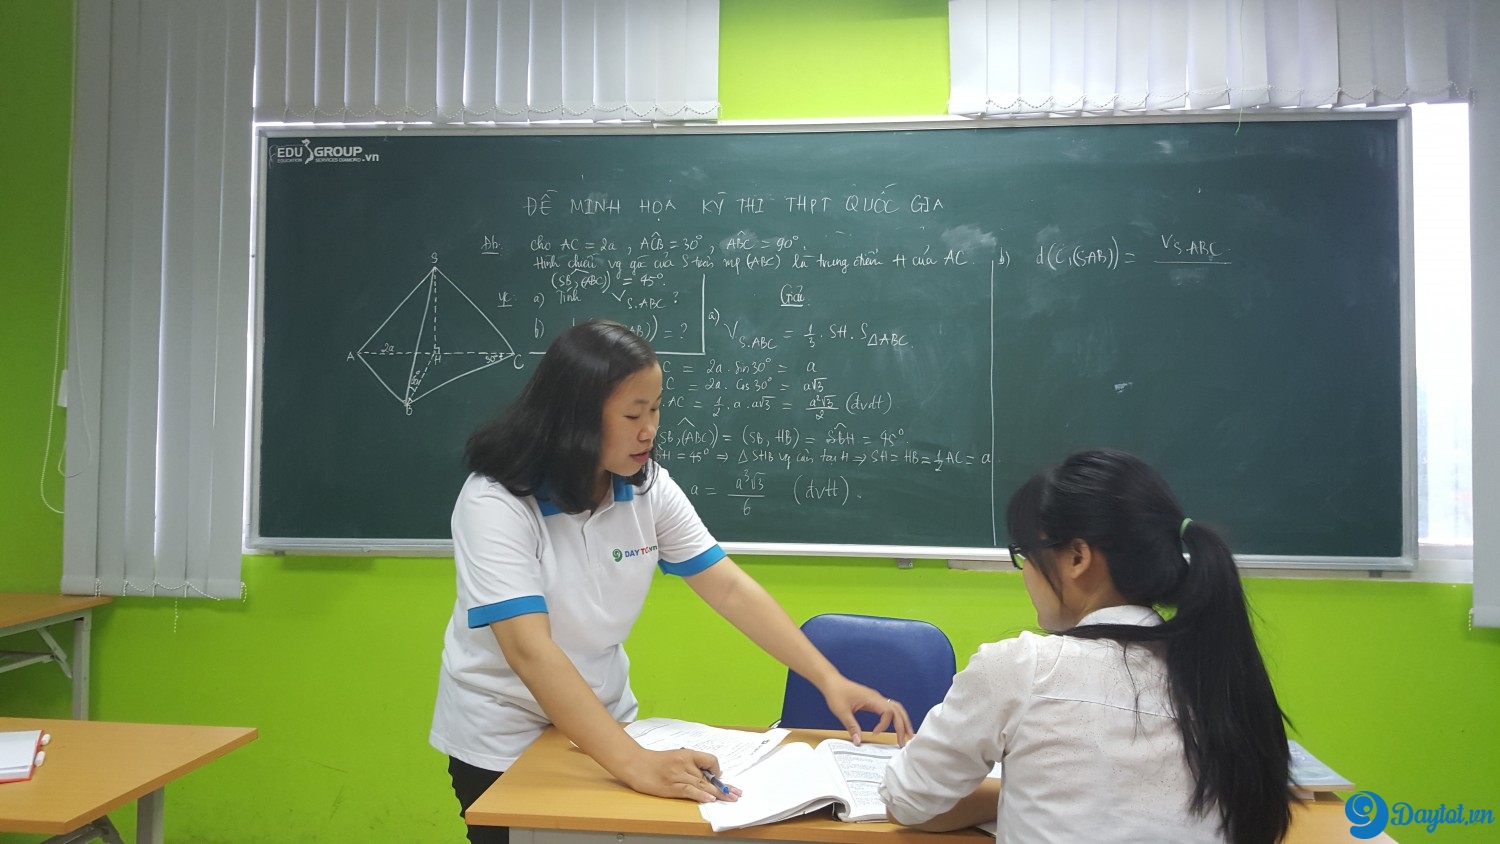 EDU GROUP.vn
EDUCATION SERVICES DIAMOND
ĐỀ MINH HỌA KỲ THI THPT QUỐC GIA
Đb: cho AC = 2a, ACB̂ = 30°, ABĈ = 90°.
Hình chiếu vg góc của S trên mp (ABC) là trung điểm H của AC.
(SB, (ABC)) = 45°.
yc: a) Tính V S.ABC ?
b) AB)) = ?
S
A
2a
H
30°
C
45°
B
Giải
a) V S.ABC = 1/3 . SH . S ΔABC
C = 2a . Sin 30° = a
.C = 2a . Cos 30° = a√3
. AC = 1/2 . a . a√3 = a²√3/2 (đvdt)
SB, (ABC)) = (SB, HB) = SBH = 45°.
= 45° ⇒ Δ SHB vg cân tại H ⇒ SH = HB = 1/2 AC = a
a = a³√3/6 (đvtt).
b) d(C, (SAB)) = V S.ABC
DAYTOT.vn
Daytot.vn